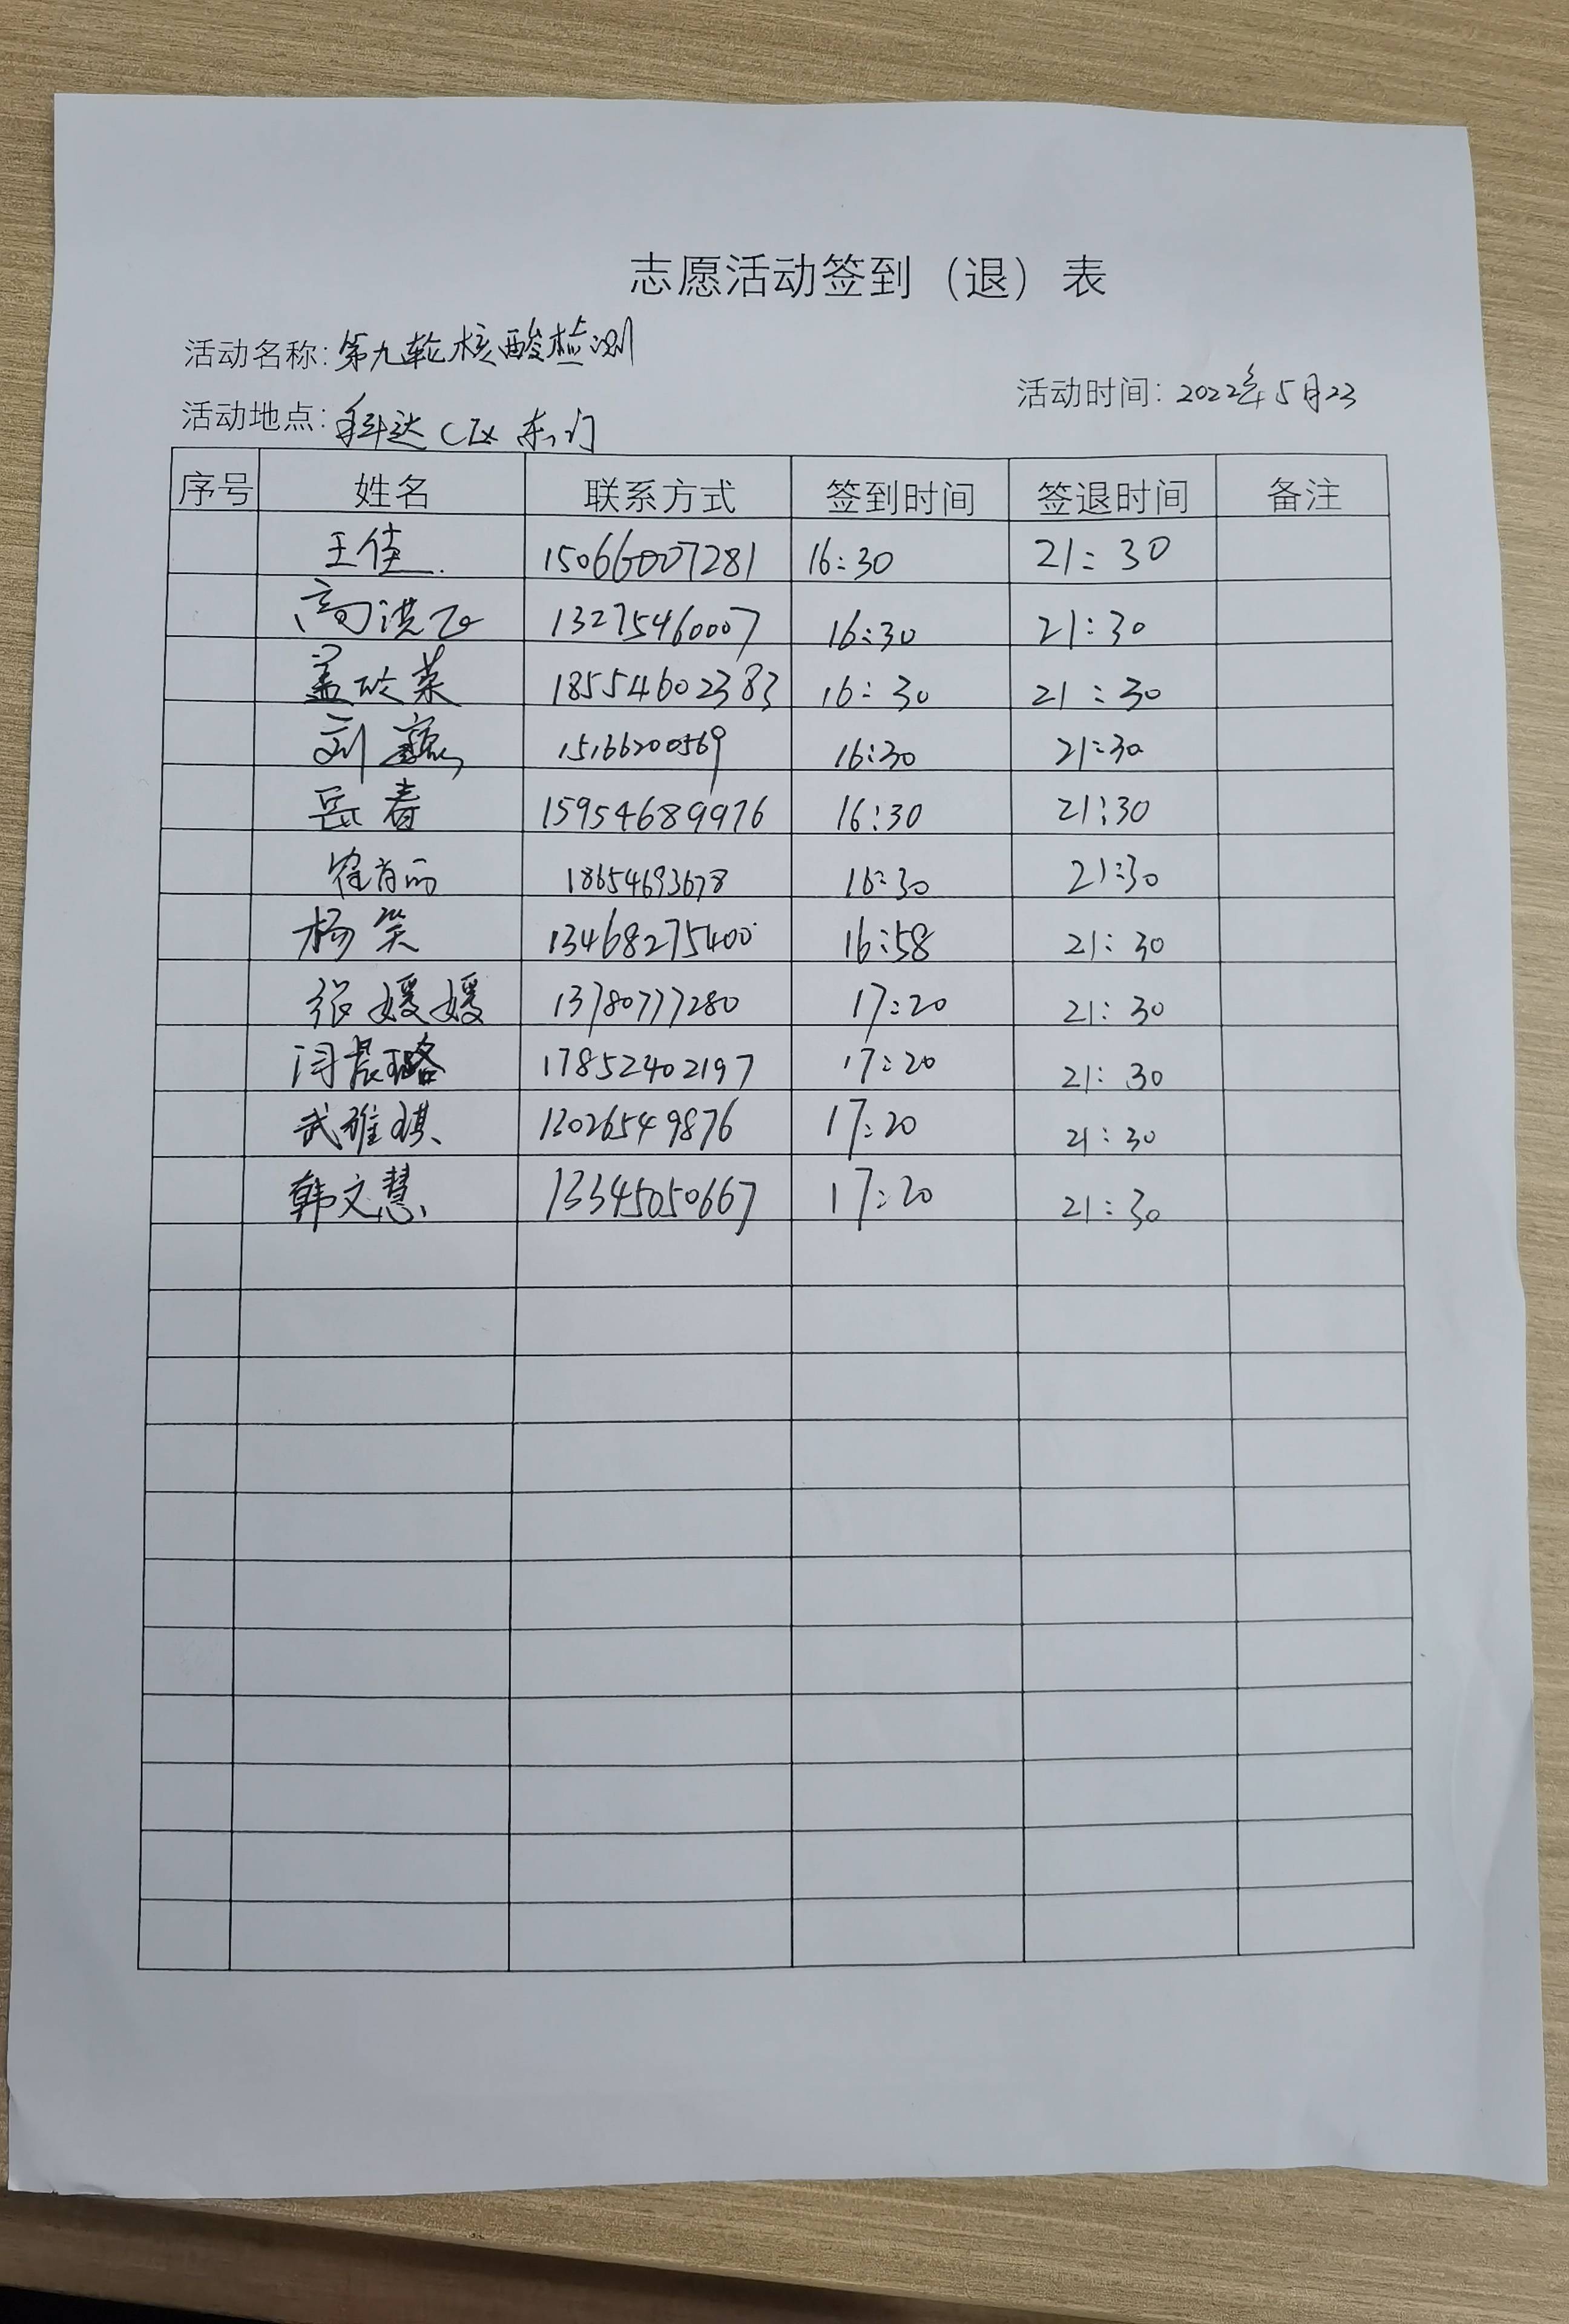 志愿活动签到（退）表
活动名称：第九轮核酸检测
活动时间：2022年5月23
活动地点：科达 C区 东门
序号 姓名 联系方式 签到时间 签退时间 备注
王佳 15066007281 16:30 21:30
高洪飞 13275460007 16:30 21:30
盖 菜 18554602383 16:30 21:30
刘 15166200569 16:30 21:30
岳春 15954689976 16:30 21:30
18654693678 16:30 21:30
杨笑 13468275400 16:58 21:30
张媛媛 13780777280 17:20 21:30
闫晨璐 17852402197 17:20 21:30
武雅琪 13026549876 17:20 21:30
韩文慧 13345050667 17:20 21:30